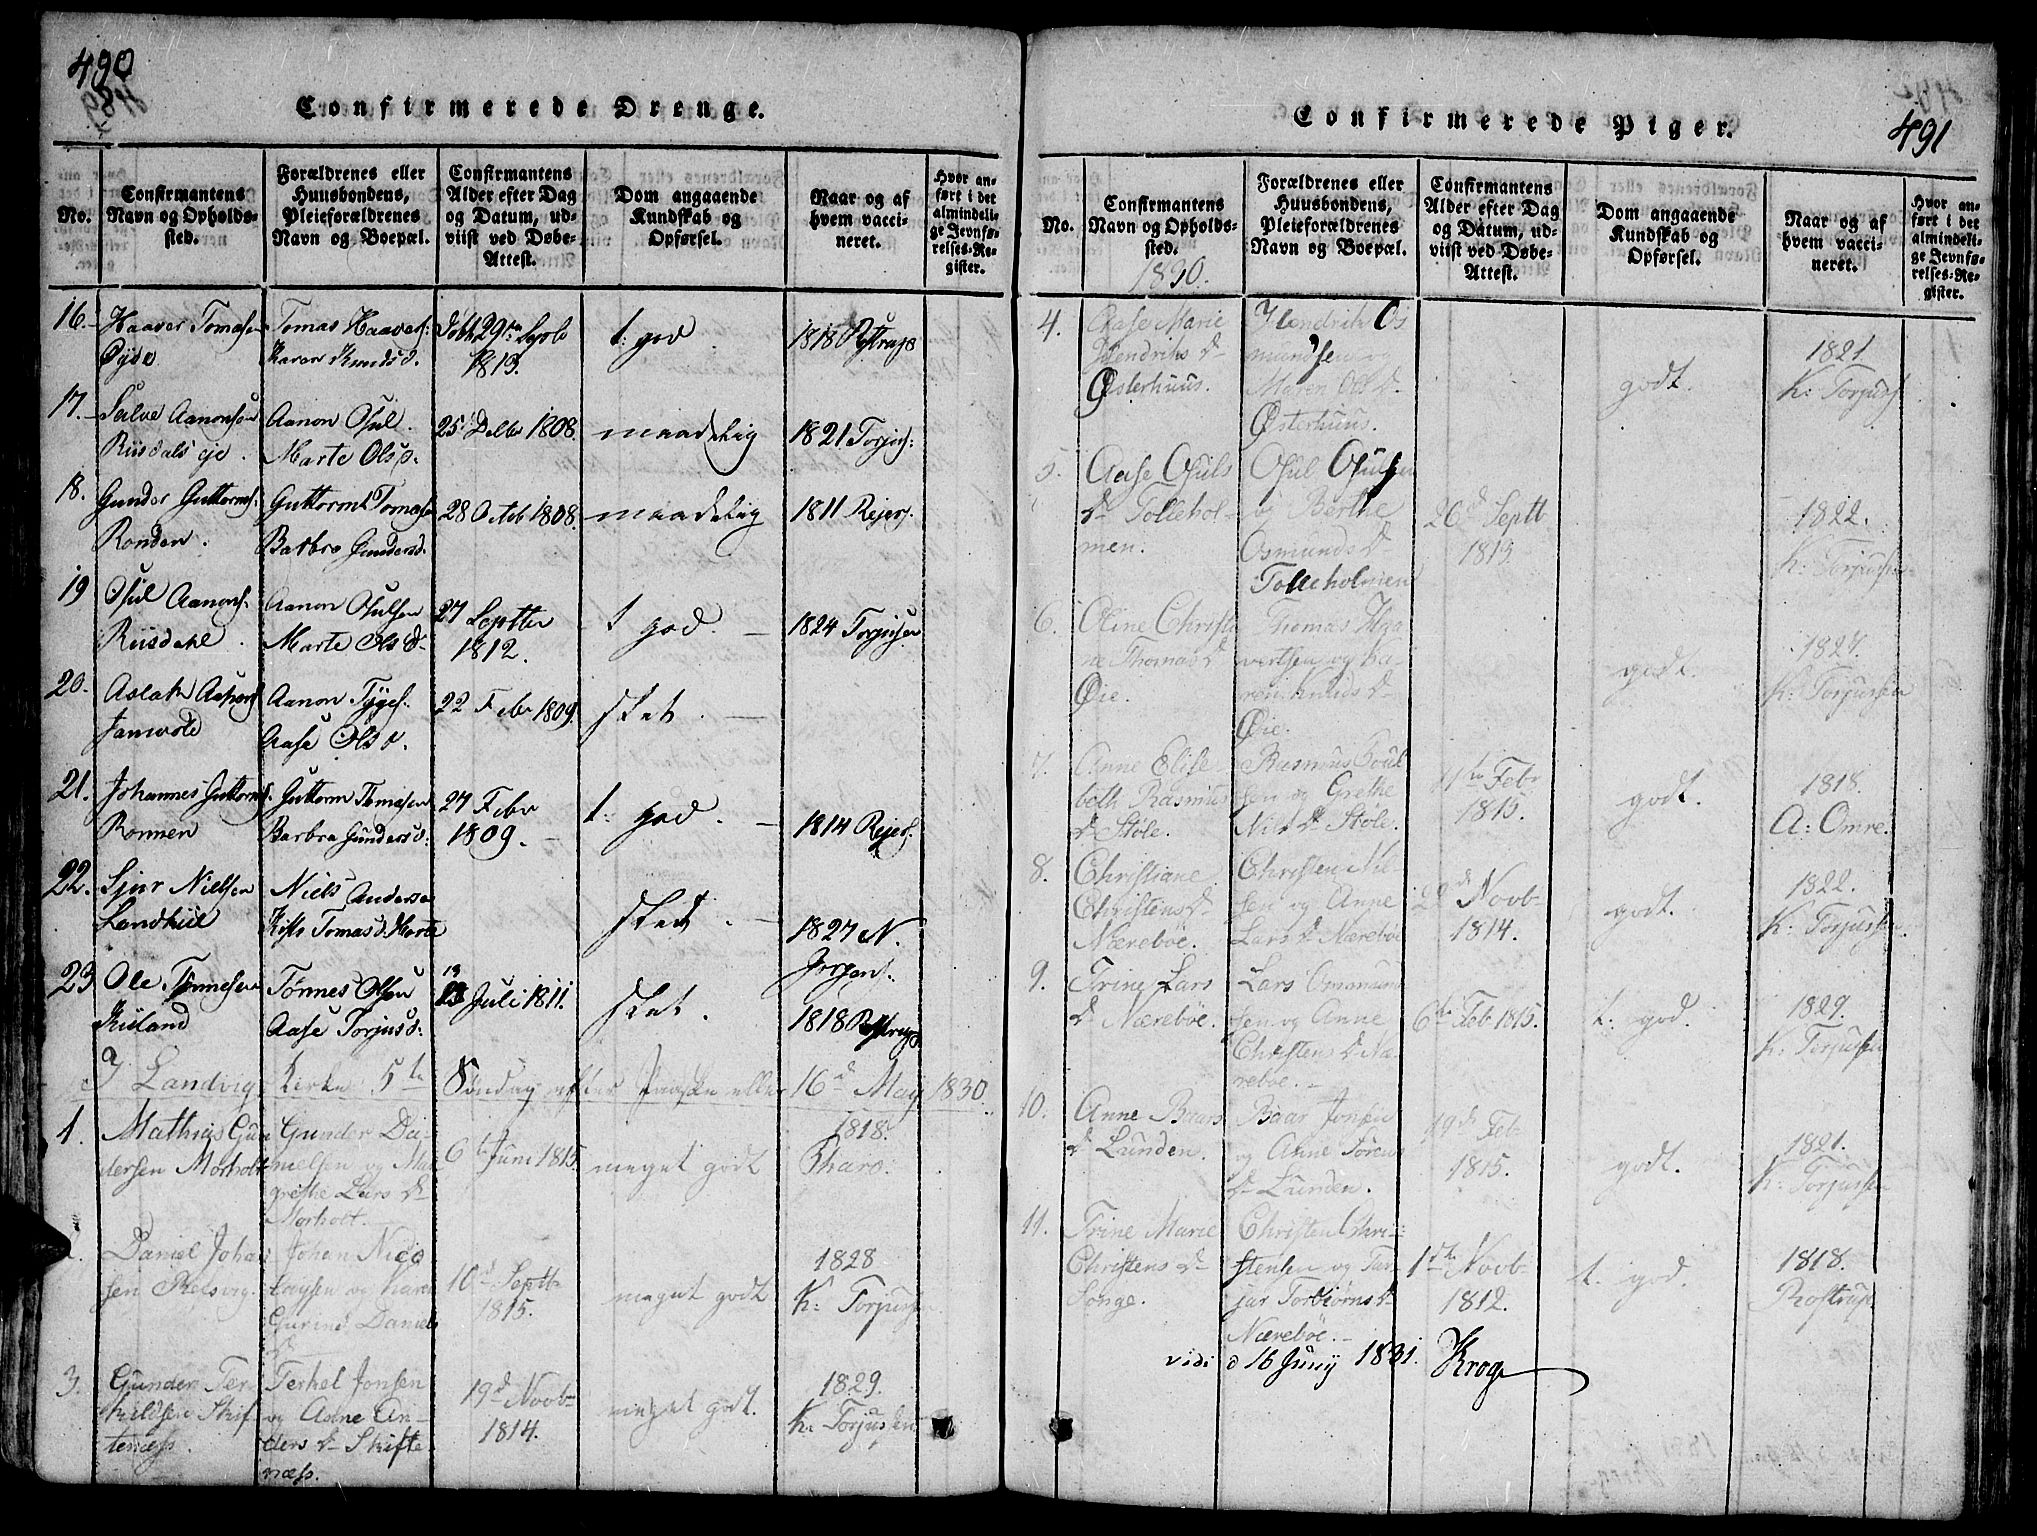 490
Confirmerede Drenge.
No.
Confirmantens
Navn og Opholds-
sted.
Forældrenes eller
Huusbondens,
Pleieforældrenes
Navn og Boepæl.
Confirmantens
Alder efter Dag
og Datum, ud-
viist ved Døbe-
Attest.
Dom angaaende
Kundskab og
Opførsel.
Naar og af
hvem vacci-
neret.
Hvor an-
ført i det
almindeli-
ge Jevnfø-
relses-Re-
gister.
16. Haaver Tomasen
Øyde
Tomas Haavers:
Karen Knudsd.
1813.
t: god
1818 Rostrup
17. Salve Aanonsøn
Riisdals eje.
Aanon Osul.
Marte Olsd.
25 Decbr 1808.
maadelig
1821 Torjus:
18. Gunder Guttorms:
Ronden.
Guttorm Tomasen
Barbro Gundersd.
28 Octob 1808.
maadelig
1811 Rejers.
19 Osul Aanons.
Riisdahl.
Aanon Osulsen
Marte Olsd
27 Septter
1812.
t god.
1824 Torjusen
20. Aslak Aanons
Aanon Tyges.
Aase Olsd.
22 Febr 1809.
slet.
21. Johannes Guttorms.
Ronnen
Guttorm Tomasen
Barbra Gundersd:
27 Febr
1809.
t: god.
1814 Rejers.
22. Sjur Nielsen
Landkiil
Niels Andersen
Kisti Tomasd. Horte
slet.
1827 N.
Jørgens.
23 Ole Tønnesen
Riiland
Tønnes Olsen
Aase Torjusd:
13 Juli 1811.
slet.
1818 Rostrup
I Landvig Kirke 5te Søndag efter Paaske eller 16d May 1830.
1. Mathias Gun
dersen Morholt
Gunder Da-
nielsen og Mar
grethe Lars D
Morholt.
6te Juni 1815.
meget godt
1818.
Tharo.
2. Daniel Johan
sen Relsvig.
Johan Nico
laysen og Karen
Gurine Daniels
D
10d Septb
1815.
meget godt
1828
K: Torjussen
3. Gunder Ter
kildsen Skif
tenæss.
Terkel Jonsen
og Anne An-
ders D Skifte
næss.
19d Novb
1814.
meget godt.
1829.
K: Torjussen
491
Confirmerede Piger.
No.
Confirmantens
Navn og Opholds-
sted.
1830.
Forældrenes eller
Huusbondens,
Pleieforældrenes
Navn og Boepæl.
Confirmantens
Alder efter Dag
og Datum, ud-
viist ved Døbe-
Attest.
Dom angaaende
Kundskab og
Opførsel.
Naar og af
hvem vacci-
neret.
Hvor an-
ført i det
almindeli-
ge Jevnfø-
relses-Re-
gister.
4. Aase Marie
Hendriks D
Østerhuus.
Hendrik Os
mundsen og
Maren Ols D
Østerhuus.
godt.
1821.
K: Torjuss
5. Aase Osuls
D Tollehol-
men.
Osul Osulsen
og Berthe
Osmunds D
Tolleholmen
26d Septb
1813.
1822.
K: Torjussen
6. Oline Christi
ne Thomas D
Øie.
Thomas Haa
vertsen og Ka-
ren Knuds D
Øie.
godt.
1827.
K: Torjussen
7. Anne Elise-
beth Rasmus
D Støle.
Rasmus Poul
sen og Grethe
Nils D Støle.
11te Febr
1815.
godt.
1818.
A: Omre.
8. Christiane
Christens D
Nærebøe.
Christen Nil-
sen og Anne
Lars D Nærebøe
29d Novb
1814.
godt.
1822.
K: Torjussen.
9. Trine Lars
D Nærebøe.
Lars Osmund
sen og Anne
Christens D Næ
rebøe.
6te Feb 1815.
t: god.
1829.
K: Torjussen
10. Anne Baars
D Lunden.
Baar Jonsen
og Anne Sørens
D Lunden.
19d Feb
1815.
godt.
1821.
K: Torjussen
11. Trine Marie
Christens D
Songe.
Christen Chri-
stensen og Tar
jar Torbiørns D
Nærebøe.
1ste Novb
1812.
t. god.
1818.
Rostrup
vidi d 16 Junij 1831. Krog